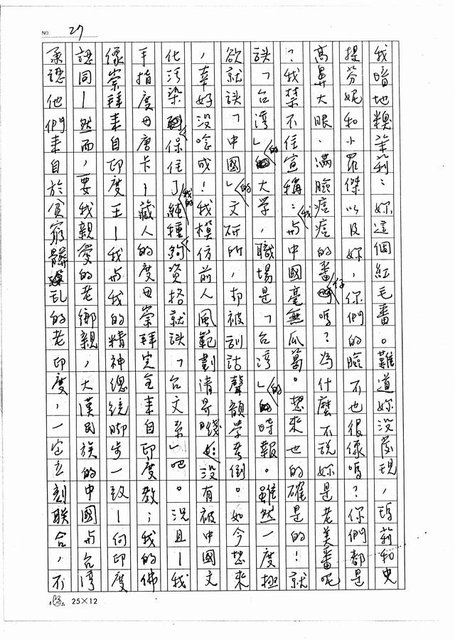 NO. 27
我暗地糗茉莉：妳這個紅毛番。難道妳沒發現，瑪莉和史
提芬妮和小羅傑以及妳，你們的臉不也很像嗎？你們都是
高鼻大眼、滿臉痘痘的番仔嗎？為什麼不說妳是老美番呢
？我禁不住宣稱：我與中國毫無瓜葛。想來也的確是的！就
談「台灣」的大學，職場是「台灣」的時報。雖然一度極
欲就談「中國」的文研所，卻被訓詁聲韻學考倒。如今想來
，幸好沒唸成！我模仿前人風範劃清界線：始沒有被中國文
化污染，保住了我的純種狗資格就談「台文系」吧。況且—我
手指度母唐卡—藏人的度母崇拜完全來自印度教；我的佛
像崇拜來自印度王—我與我的精神總統腳步一致—向印度
認同—然而，要我親愛的老鄉親，大漢民族的中國與台灣
承認他們來自於貧窮髒亂的老印度，一定立刻聯合，不
25×12